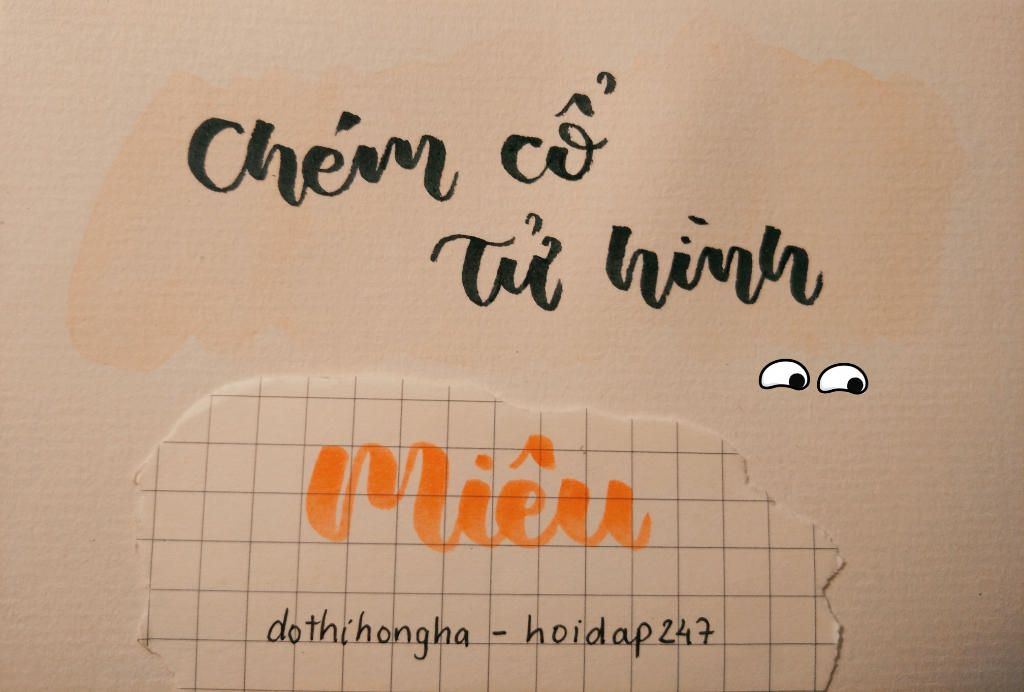 Chém cổ
tử hình
Miêu
dothihongha - hoidap247